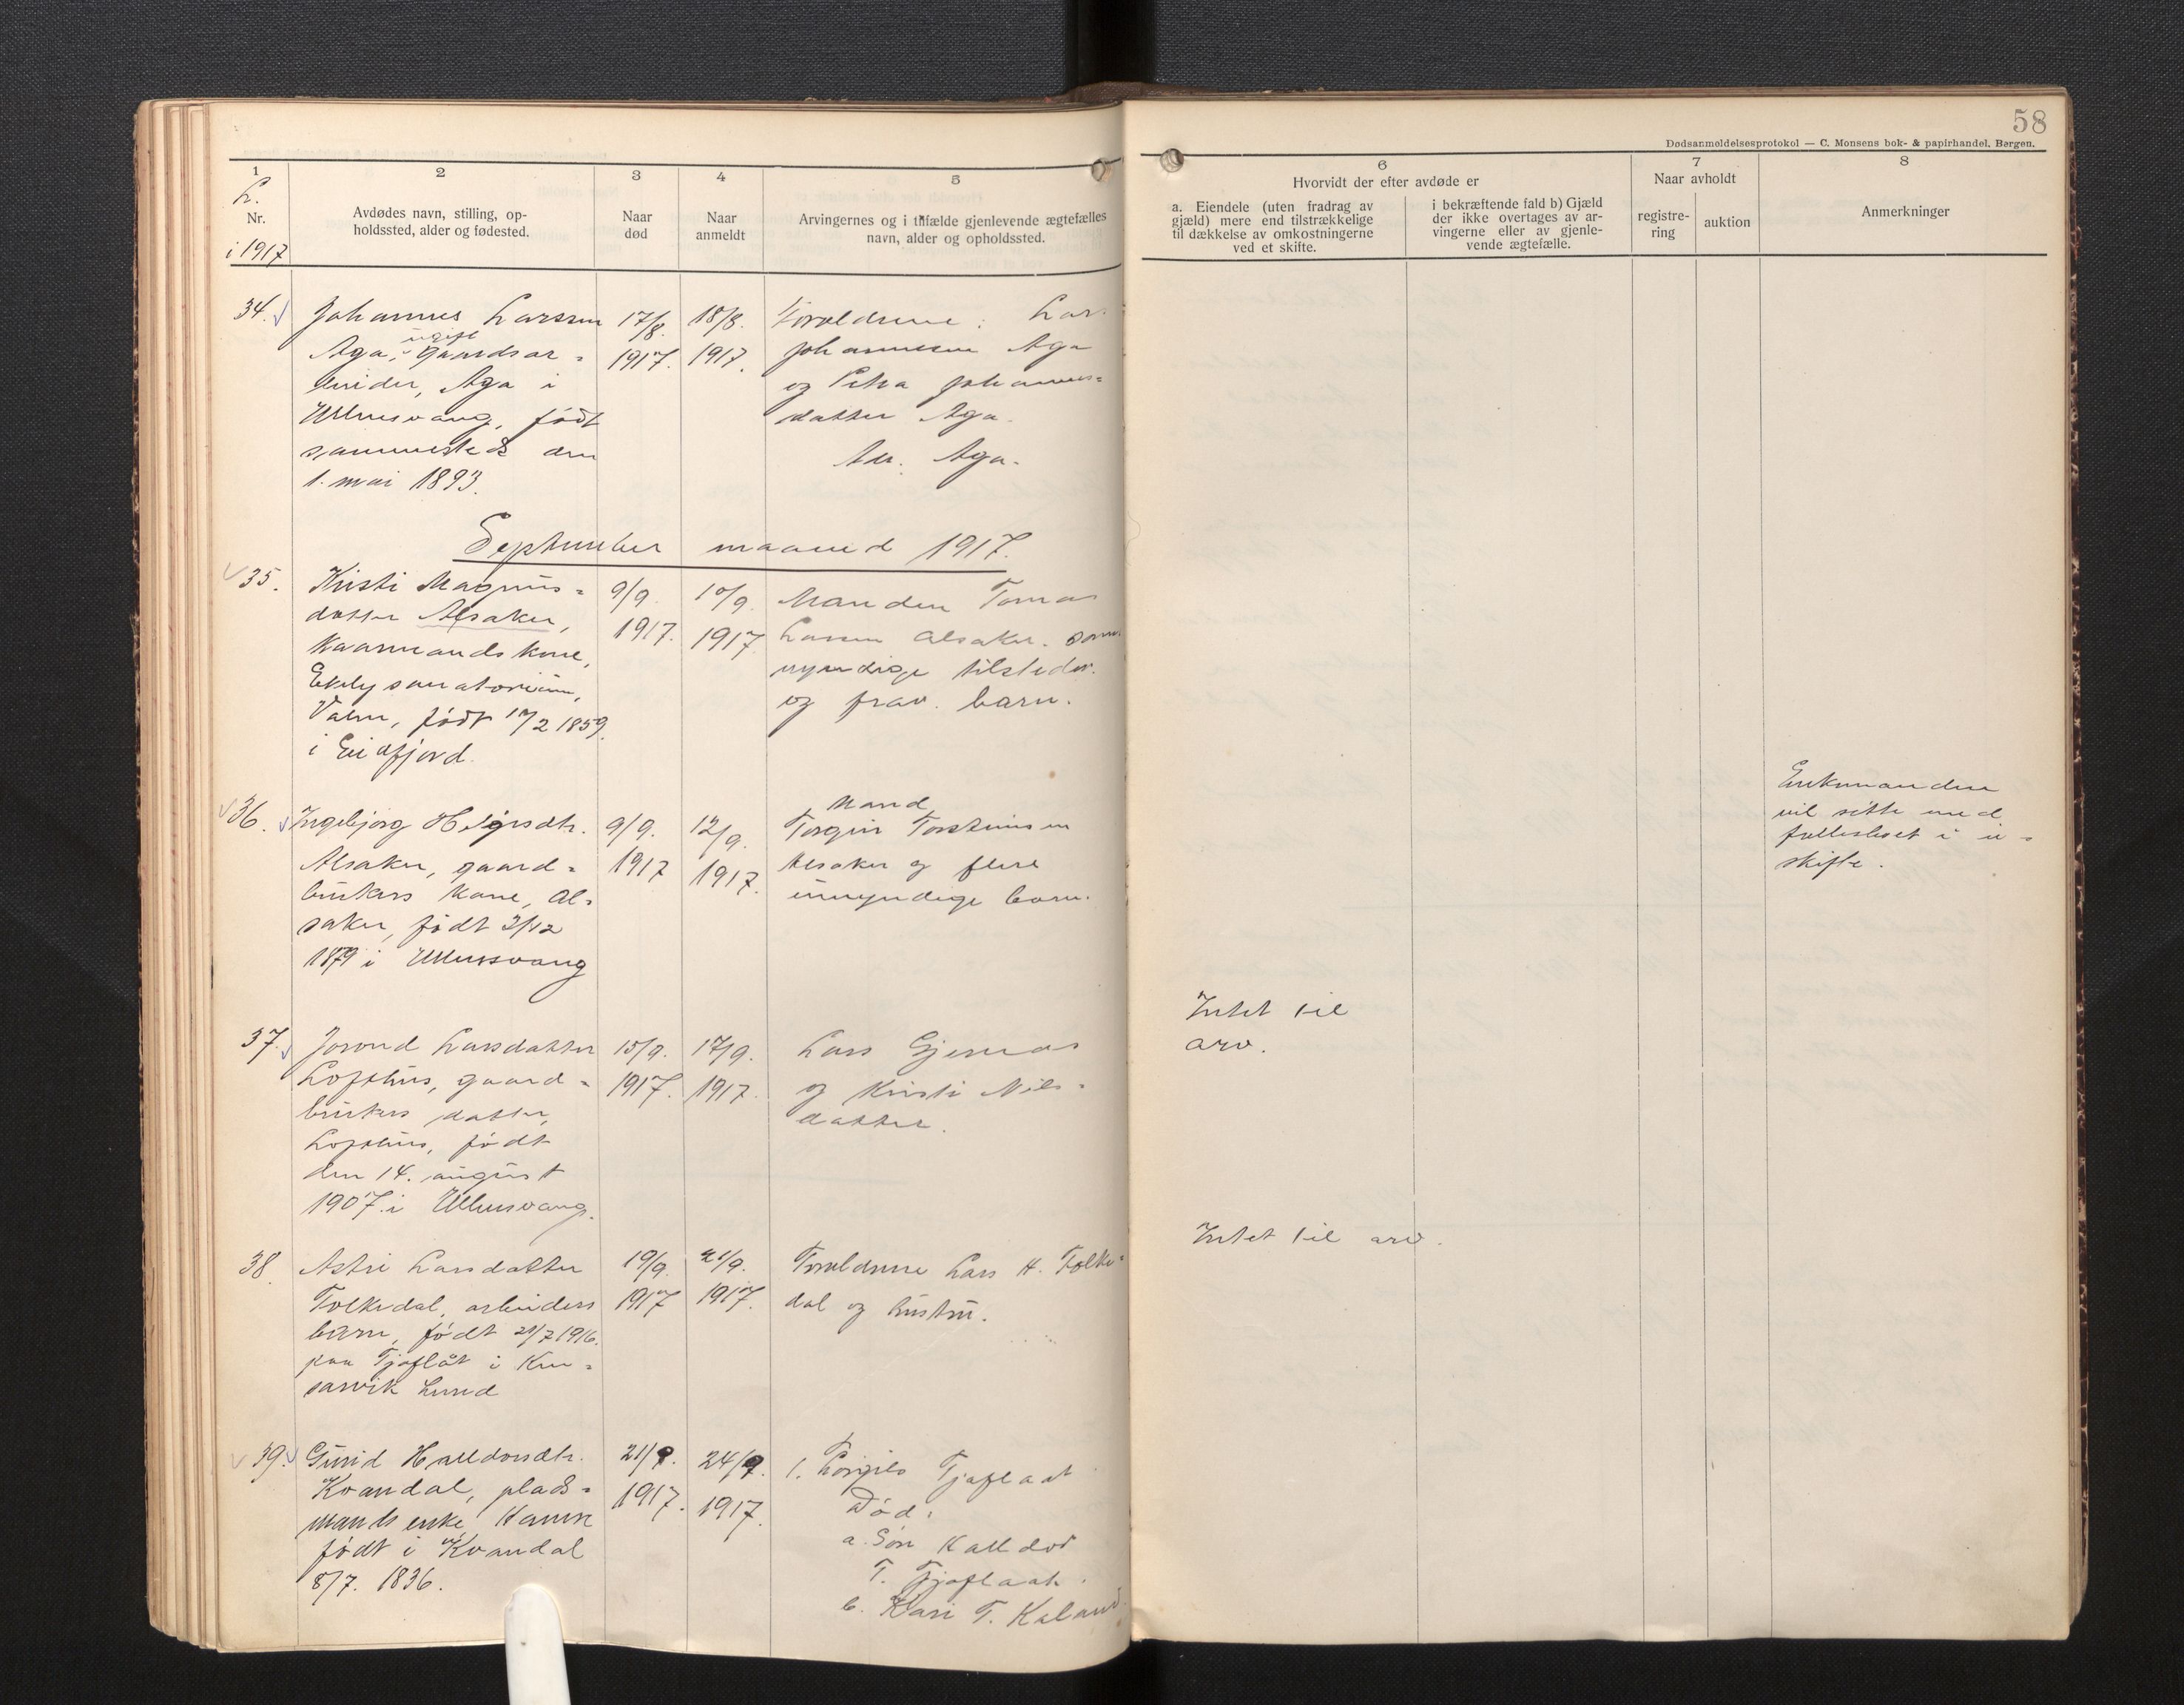 58
Dødsanmeldelsesprotokol — C. Monsens bok- & papirhandel. Bergen.
1
L.
Nr.
i 1917
2
Avdødes navn, stilling, op-
holdssted, alder og fødested.
3
Naar
død
4
Naar
anmeldt
5
Arvingernes og i tilfælde gjenlevende ægtefælles
navn, alder og opholdssted.
6
Hvorvidt der efter avdøde er
a. Eiendele (uten fradrag av
gjæld) mere end tilstrækkelige
til dækkelse av omkostningerne
ved et skifte.
i bekræftende fald b) Gjæld
der ikke overtages av ar-
vingerne eller av gjenle-
vende ægtefælle.
7
Naar avholdt
registre-
ring
auktion
8
Anmerkninger
34.
Johannes Larssen
ugift
Aga, gaardsar-
beider, Aga i
Ullensvang, født
sammesteds den
1. mai 1893.
17/8.
1917.
18/8.
1917.
Forældrene: Lars
Johannessen Aga
og Petra Johannes-
datter Aga.
Adr. Aga.
September maaned 1917.
35.
Kristi Magnus-
datter Alsaker,
kaarmandskone,
Eikely sanatorium,
født 17/2 1859
i Eidfjord.
9/9.
1917.
10/9.
1917
Manden Tomas
Larsen Alsaker.
myndige tilstedev.
og frav. barn.
36.
Ingebjørg Helgesdtr.
Alsaker, gaard-
brukers kone, Al-
saker, født 3/12
1879 i Ullensvang
9/9.
1917
12/9.
1917.
Mand
Torgeir Torsteinsen
Alsaker og flere
umyndige barn.
Enkemanden
vil sitte med
fællesboet i u-
skifte.
37.
Jorond Larsdatter
Lofthus, gaard-
brukers datter,
Lofthus, født
den 14. august
1907 i Ullensvang.
15/9.
1917.
17/9.
1917.
Lars Gjernes
og Kristi Nils-
datter.
Intet til
arv.
38.
Astri Larsdatter
Tolkedal, arbeiders
barn, født 21/7 1916.
paa Tjoflåt i Kin-
sarvik herred
19/9.
1917
21/9.
1917.
Forældrene Lars H. Tolke-
dal og hustru.
Intet til arv.
39.
Gurid Halldorsdtr.
Kvandal, plads-
mands enke
født i Kvandal
8/7. 1836.
21/9.
1917.
24/9.
1917.
1. Torgils Tjoflaat
Død:
a. Søn Halldor
T. Tjoflaat.
b. Kari T. Kaland